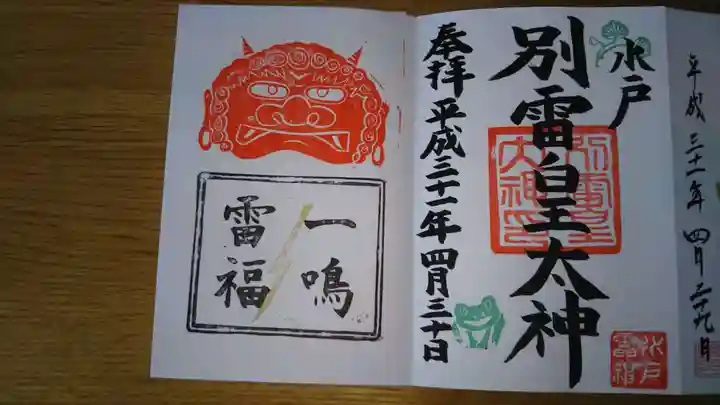 平成三十一年四月二十九日
水戸
別雷皇太神
別雷皇太神印
水戸雷神
奉拝平成三十一年四月三十日
一鳴
雷福